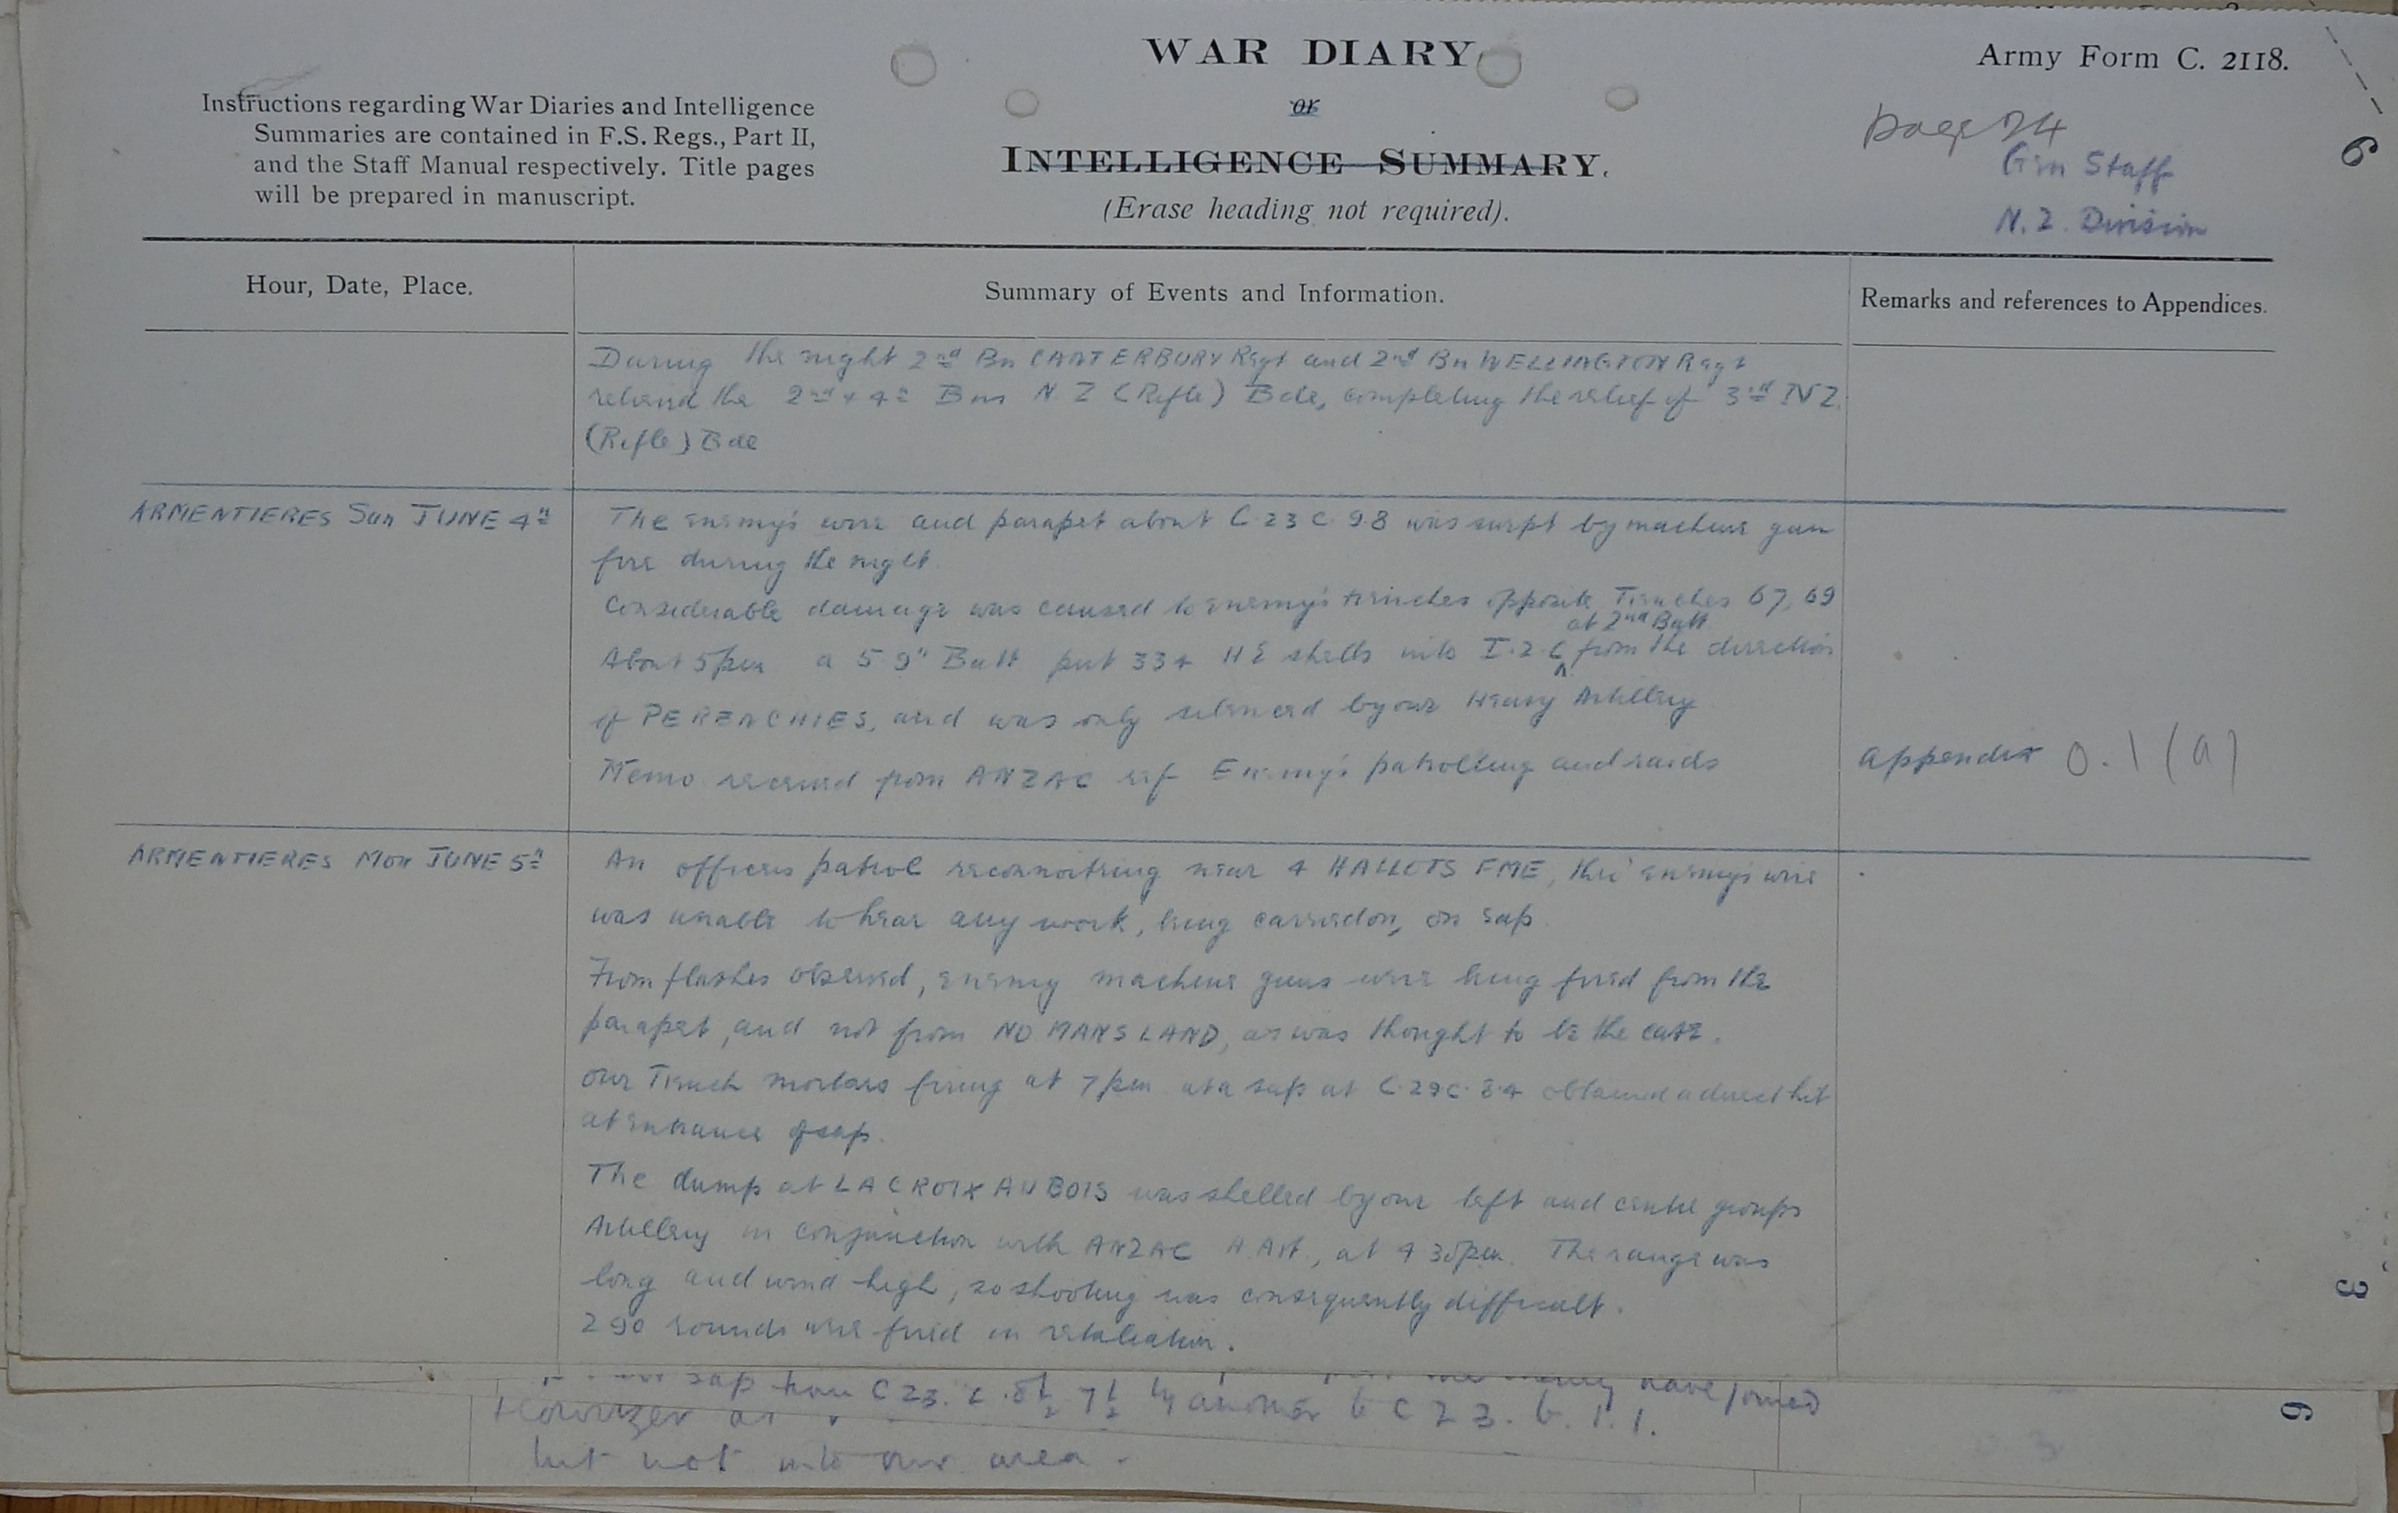 WAR DIARY
or
INTELLIGENCE SUMMARY.
(Erase heading not required).
Army Form C. 2118.
Instructions regarding War Diaries and Intelligence
Summaries are contained in F.S. Regs., Part II,
and the Staff Manual respectively. Title pages
will be prepared in manuscript.
page 24
Gen Staff
N.Z. Division
6
Hour, Date, Place.
Summary of Events and Information.
Remarks and references to Appendices.
During the night 2nd Bn CANTERBURY Regt and 2nd Bn WELLINGTON Regt
relieved the 2nd & 4th Bns N Z (Rifle) Bde, completing the relief of 3rd NZ.
(Rifle) Bde
ARMENTIERES Sun JUNE 4th
The enemy's wire and parapet about C.23 C.9.8 was swept by machine gun
fire during the night.
Considerable damage was caused to enemy's trenches opposite Trenches 67, 69
at 2nd Batt
About 5pm a 5.9" Batt put 334 HE shells into I.2.C from the direction
of PERENCHIES, and was only silenced by our Heavy Artillery
Memo received from ANZAC ref Enemy's patrolling and raids
appendix 0.1 (a)
ARMENTIERES Mon JUNE 5th
An officers patrol reconnoitring near 4 HALLOTS FME, the enemy's wire
was unable to hear any work, being carried on, on sap.
From flashes observed, enemy machine guns were being fired from the
parapet, and not from NO MANS LAND, as was thought to be the case.
our Trench mortars firing at 7pm at a sap at C.29C.8.4 obtained a direct hit
at entrance of sap.
The dump at LA CROIX AU BOIS was shelled by our left and centre groups
Artillery in conjunction with ANZAC H.Art., at 4 30pm. The range was
long and wind high, so shooting was consequently difficult.
290 rounds were fired in retaliation.
3
sap from C 23. c. 8½ 7½ by another to C 23. 6. 1.1. have joined
but not into our area.
6